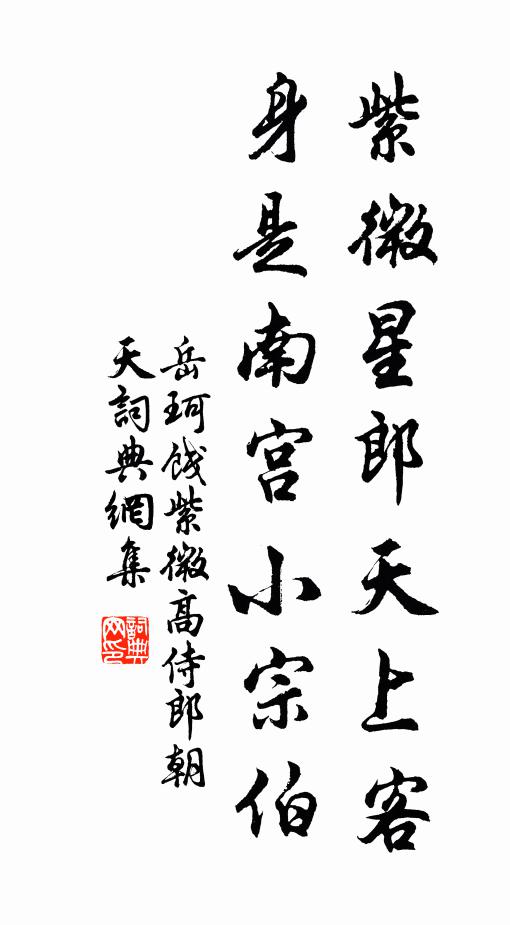 紫微星郎天上客
身是南宫小宗伯
岳珂餞紫微高侍郎朝
天詞典網集
詞典
网印